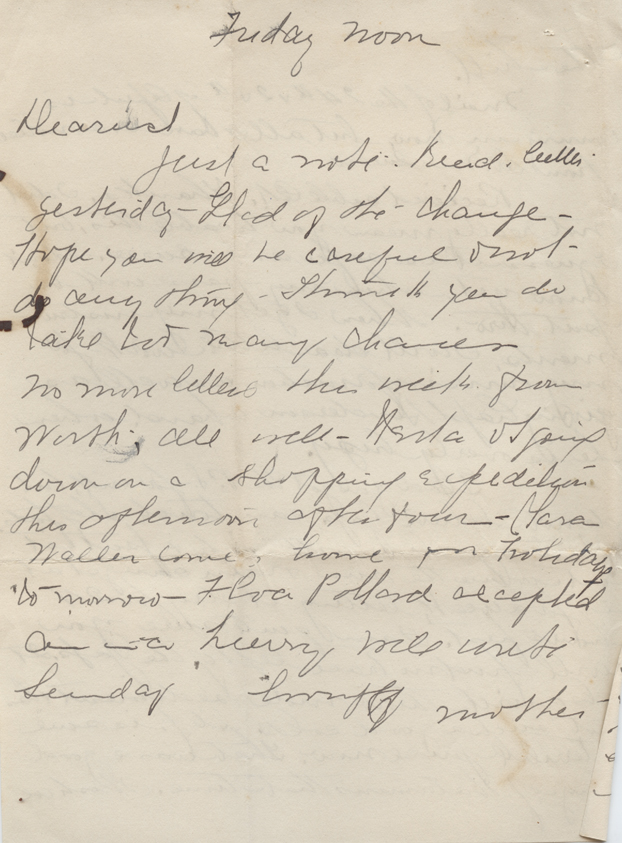 Friday noon
Dearest
Just a note. Recd. letter
yesterday - Glad of the change -
Hope you will be careful & not
do any thing - I think you do
take too many chances
no more letters this week from
Worth, all well - Hesta & I going
down on a shopping expedition
this afternoon after four - Clara
Waller comes home for Holidays
to morrow - Flora Pollard accepted
Am in a hurry will write
Sunday Lovingly mother